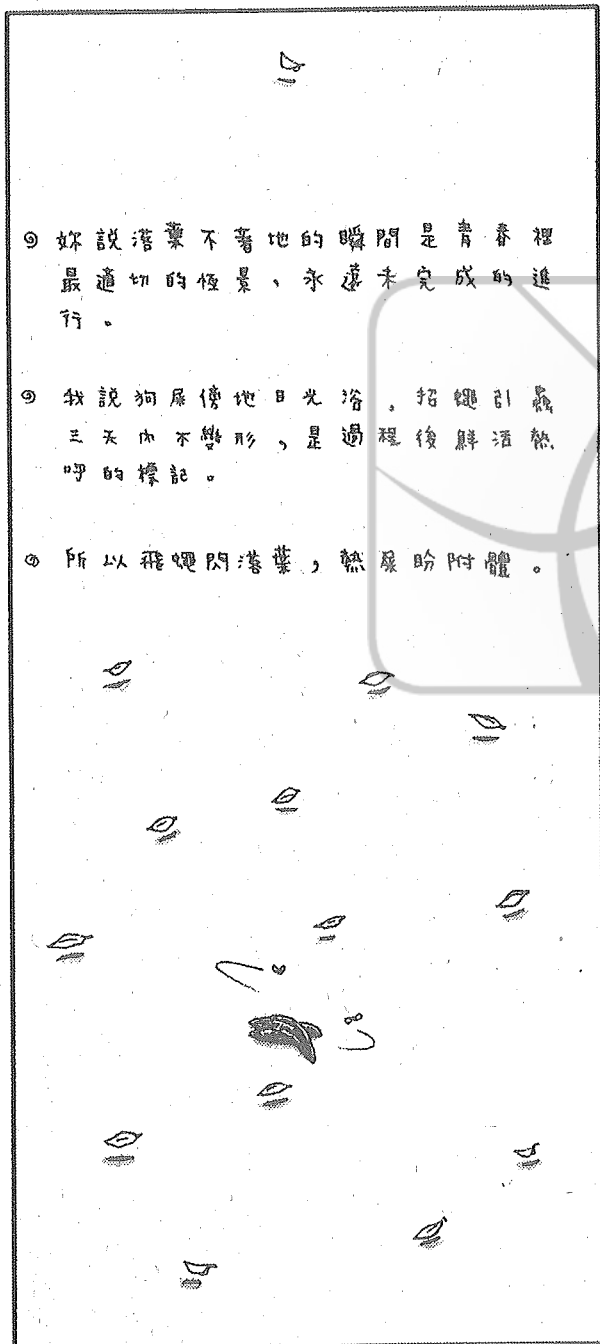 妳說落葉不著地的瞬間是青春裡
最適切的恆景、永遠未完成的進
行。
我說狗屎傍地日光浴，招蠅引蟲
三天內不變形，是過程後鮮活熱
呼的標記。
所以飛蠅閃落葉，熱屎盼附體。